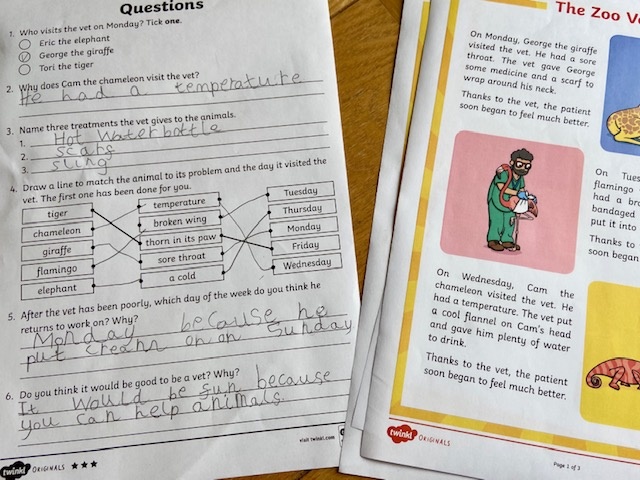 Questions
1. Who visits the vet on Monday? Tick one.
Eric the elephant
George the giraffe
Tori the tiger
2. Why does Cam the chameleon visit the vet?
He had a temperature
3. Name three treatments the vet gives to the animals.
1. Hot Water bottle
2. scars
3. sling
4. Draw a line to match the animal to its problem and the day it visited the
vet. The first one has been done for you.
tiger temperature Tuesday
chameleon broken wing Thursday
giraffe thorn in its paw Monday
flamingo sore throat Friday
elephant a cold Wednesday
5. After the vet has been poorly, which day of the week do you think he
returns to work on? Why?
Monday because he
put cream on on Sunday
6. Do you think it would be good to be a vet? Why?
It would be fun because
you can help animals.
visit twinkl.com
twinkl ORIGINALS
The Zoo Ve
On Monday, George the giraffe
visited the vet. He had a sore
throat. The vet gave George
some medicine and a scarf to
wrap around his neck.
Thanks to the vet, the patient
soon began to feel much better.
On Tues
flamingo
had a bro
bandaged
put it into
Thanks to
soon began
On Wednesday, Cam the
chameleon visited the vet. He
had a temperature. The vet put
a cool flannel on Cam's head
and gave him plenty of water
to drink.
Thanks to the vet, the patient
soon began to feel much better.
twinkl ORIGINALS
Page 1 of 3